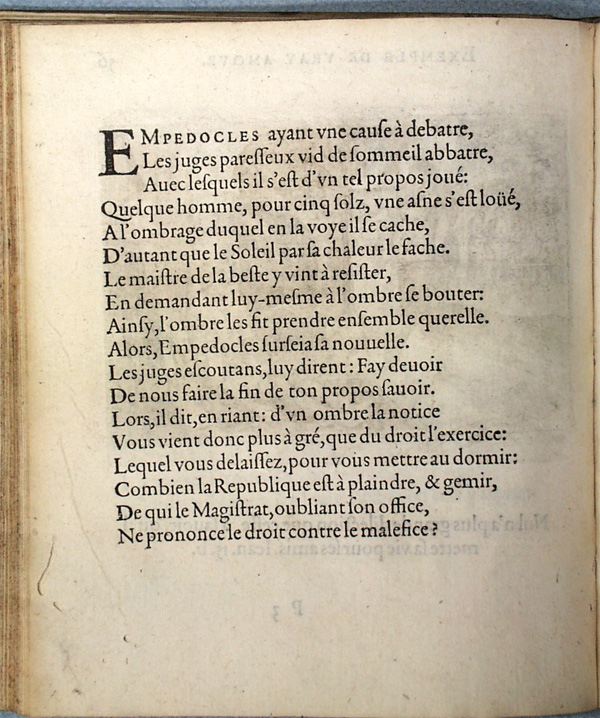 EMPEDOCLES ayant vne cauſe à debatre,
Les juges pareſſeux vid de ſommeil abbatre,
Auec leſquels il s'eſt d'vn tel propos joué:
Quelque homme, pour cinq ſolz, vne aſne s'eſt loüé,
A l'ombrage duquel en la voye il ſe cache,
D'autant que le Soleil par ſa chaleur le fache.
Le maiſtre de la beſte y vint à reſiſter,
En demandant luy-meſme à l'ombre ſe bouter:
Ainſy, l'ombre les fit prendre enſemble querelle.
Alors, Empedocles ſurſeia ſa nouuelle.
Les juges eſcoutans, luy dirent: Fay deuoir
De nous faire la fin de ton propos ſauoir.
Lors, il dit, en riant: d'vn ombre la notice
Vous vient donc plus à gré, que du droit l'exercice:
Lequel vous delaiſſez, pour vous mettre au dormir:
Combien la Republique eſt à plaindre, & gemir,
De qui le Magiſtrat, oubliant ſon office,
Ne prononce le droit contre le malefice?